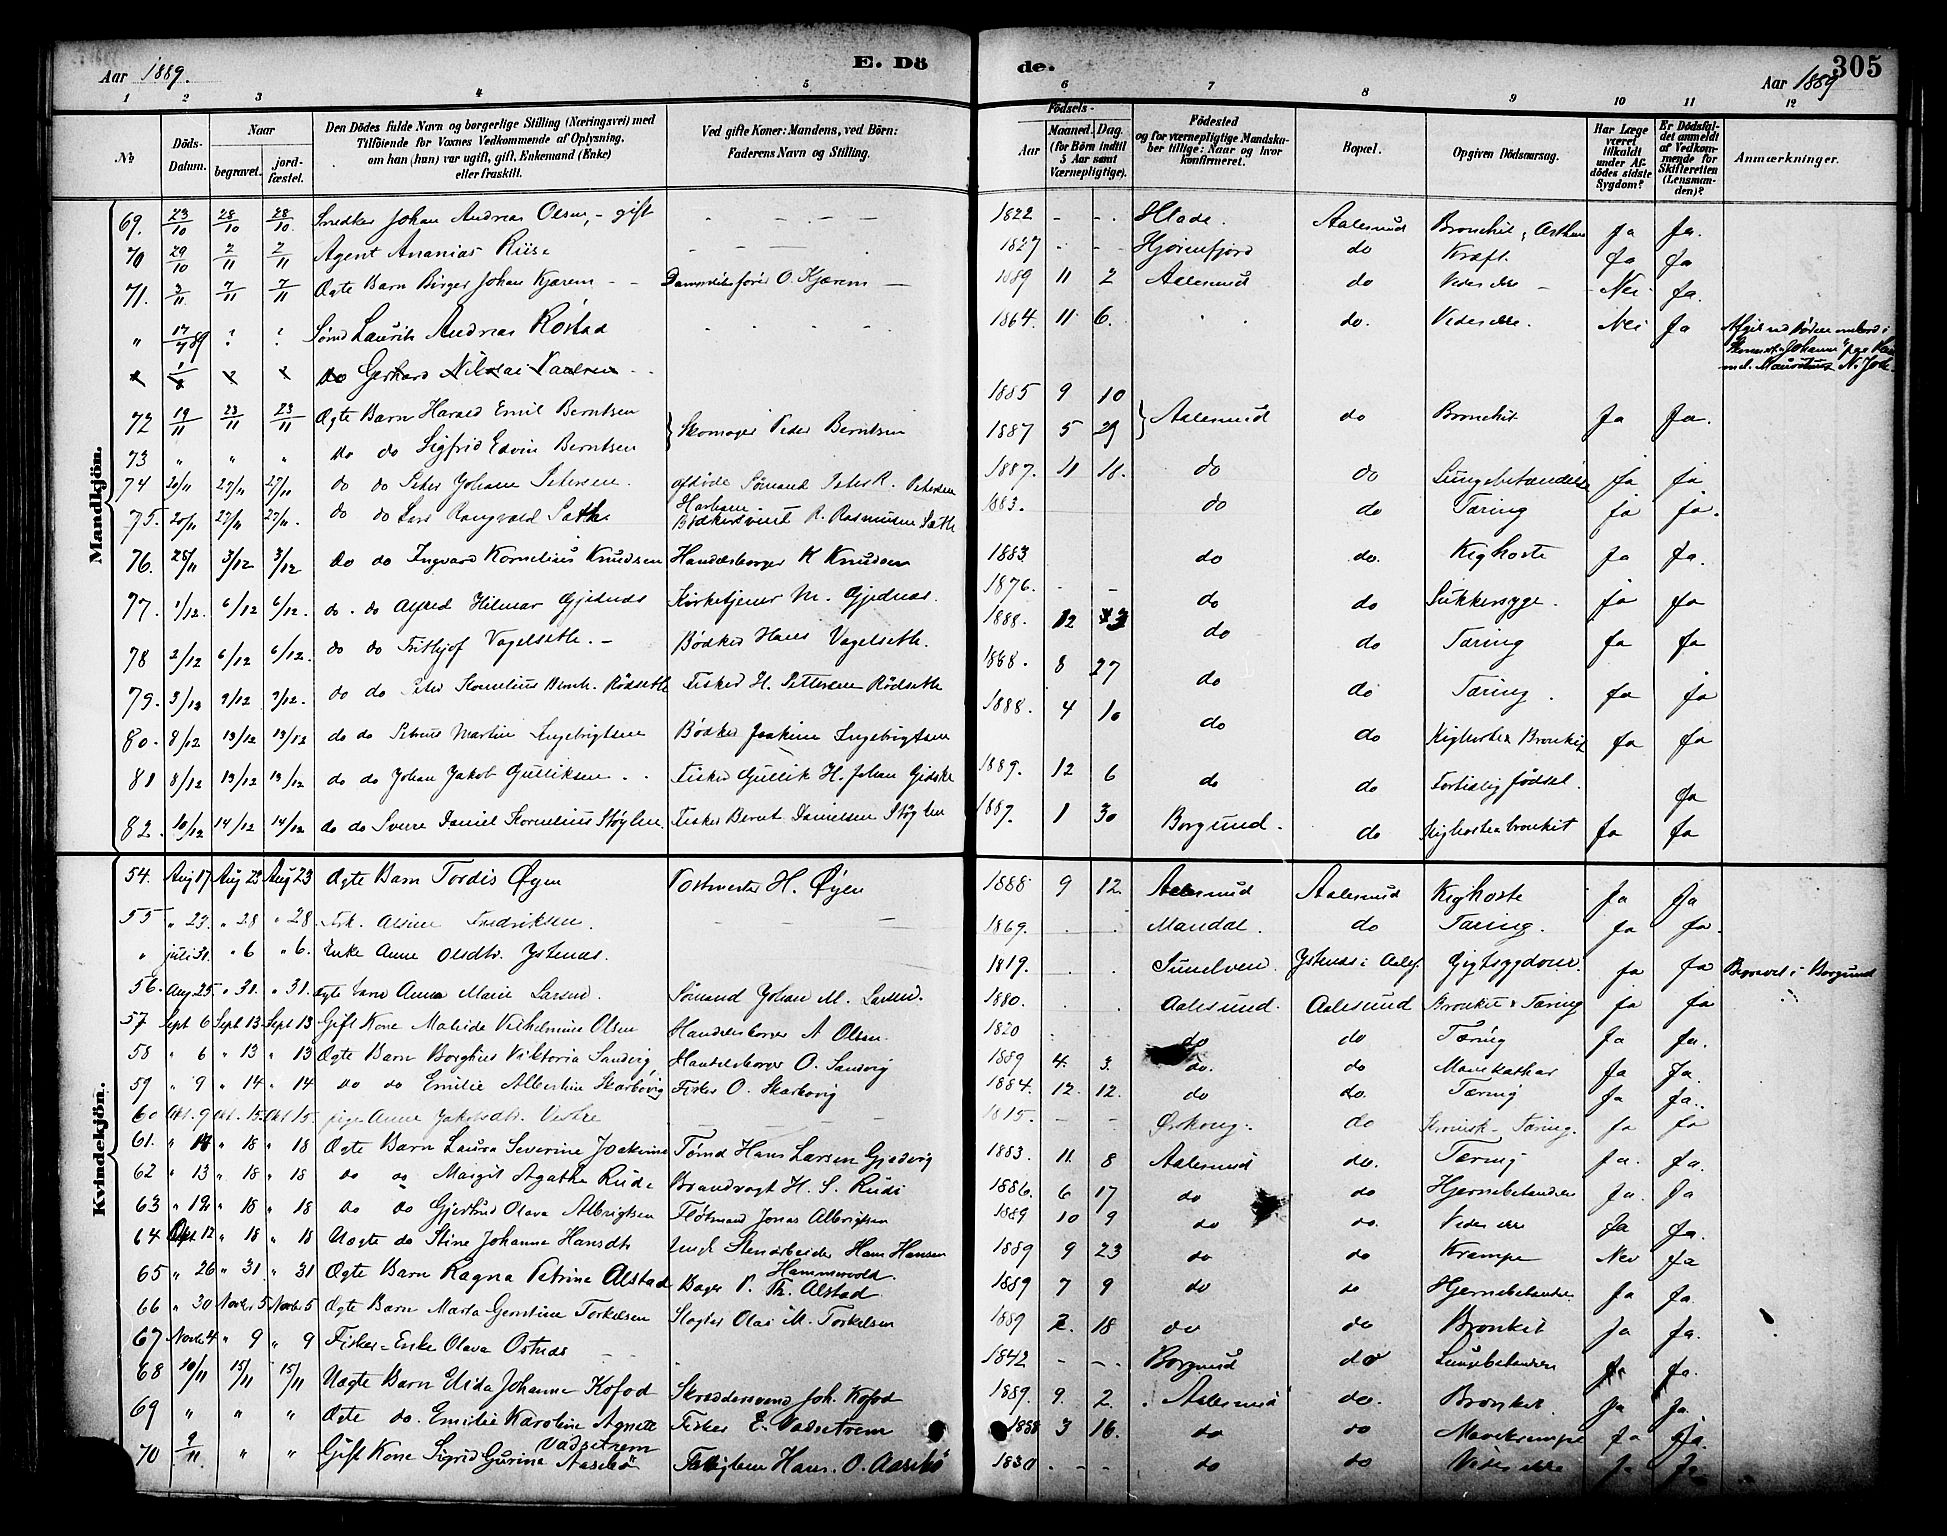 Aar 1889.
E. Dö
de.
305
Aar 1889
1 2 3 4 5 6 7 8 9 10 11 12
No
Döds-Datum.
Naar
begravet.
jord-fæstet.
Den Dödes fulde Navn og borgerlige Stilling (Næringsvei) med
Tilföiende for Voxnes Vedkommende af Oplysning,
om han (hun) var ugift, gift, Enkemand (Enke)
eller fraskilt.
Ved gifte Koner: Mandens, ved Börn:
Faderens Navn og Stilling.
Födsels-
Aar
Maaned. Dag.
(for Börn indtil
5 Aar samt
Værnepligtige).
Födested
og for værnepligtige Mandska-
ber tillige: Naar og hvor
konfirmeret.
Bopæl.
Opgiven Dödsaarsag.
Har Læge
været
tilkaldt
under Af-
dödes sidste
Sygdom?
Er Dödsfal-
det anmeldt
af Vedkom-
mende for
Skifteretten
(Lensman-
den)?
Anmærkninger.
Mandkjön.
69. 23/10 28/10 28/10 Snedker Johan Andreas Olsen, - gift 1822 Hlade. Aalesund Bronchit, Ja Ja.
70 29/10 2/11 2/11 Agent Ananias Riise 1827 Hjørenfjord do Kræft. Ja Ja
71. 3/11 7/11 7/11 Ægte Barn Birger Johan Kjærem Dampskibsfører O. Kjærem 1889 11 2 Aalesund do Vides ikke Nei Ja.
" 17/7 89 ? ? Sømd Laurits Andreas Röstad 1864 11 6. do. Vides ikke. Nei Ja
do Gerhard Nikolai Paulsen
72 19/11 23/11 23/11 Ægte Barn Harald Emil Berntsen Skomager Peder Berntsen 1885 9 10 Aalesund do Bronchit Ja Ja.
73 " " " do do Sigfrid Edvin Berntsen 1887 5 29
74 20/11 27/11 27/11 do do Peter Johan Petersen. afdøde Sømand Peter R. Petersen 1887. 11 11. do do Lungebetændelse Ja Ja
75. 20/11 27/11 27/11. do do Lars Rangvald Sæth Bødkersvend R. Rasmusen Sæth 1883. do do Tæring Ja Ja.
76. 28/11 3/12 3/12 do do Ingvard Kornelius Knudsen Handelsborger K Knudsen 1883 do do. Kighoste Ja Ja.
77. 1/12 6/12 6/12. do. do Alfred Hilmar Gjednes Kirketjener M. Gjednes. 1876. do do Sukkersyge. Ja Ja
78 2/12 6/12 6/12. do do Frithjof Vagelseth. Bødker Hans Vagelseth. 1888. 12 do do Tæring Ja Ja
79. 3/12 9/12 9/12. do do Peter Kornelius Bernh. Rödseth Fisker H. Pettersen Rödseth 1868. 8 27 do do Tæring. Ja Ja
80. 8/12 13/12 13/12 do do Petrus Martin Ingebrigtsen Bödker Joakim Ingebrigtsen 1888. 4 10 do do Kighoste & Bronkit Ja Ja
81 8/12 13/12 13/12 do do Johan Jakob Gulliksen Fisker Gullik H. Johan Gidske 1889. 12 6 do do Fortidlig födsel. Ja
82. 10/12 14/12 14/12 do do Sverre Daniel Kornelius Støylen. Fisker Bernt Danielsen Støylen 1887. 1 30 Borgund. do Kighoste & bronkit Ja Ja
Kvindekjön.
54. Aug 17 Aug 23 Aug 23 Ægte Barn Tordis Øyen Postmester H. Øyen 1888 9 12 Aalesund Aalesund Kighoste Ja Ja
55 " 23. " 28 " 28 Alsine Fredriksen. 1869. Mandal. do Tæring. Ja Ja.
" juli 31. " 6 " 6. Enke Anne Olsdtr. Ystenes. 1819. Sunelven Ystenes i Aales. Gigtsygdom. Ja Ja Begravet i Borgund
56. Aug 25 " 31. " 31. Ægte barn Anna Marie Larsen. Sömand Johan M. Larsen. 1880. Aalesund. Aalesund Bronkit & Tæring Ja Ja
57 Sept 6 Sept 13 Sept 13 Gift Kone Mathilde Vilhelmine Olsen Handelsborger A Olsen. 1820 do do Tæring Ja Ja.
58 " 6 " 13 " 13 Ægte Barn Borghild Viktoria Sandvig Handelsborger O. Sandvig 1889 4. 3 do. do Mavekathar Ja Ja.
59 " 9 " 14 " 14 do do Emilie Albertine Skarbövig Fisker O. Skarbövig 1884. 12. 12. do do. Tæring Ja Ja.
60 Okt. 9 Okt. 15 Okt 15. pige Anne Jakobsdtr. Vestre 1815. Ørskoug. do Kronisk Tæring. Ja Ja
61. " 14 " 18 " 18 Ægte Barn Laura Severine Joakime Tømd Hans Larsen Gjødvig 1883. 11. 8 Aalesund do. Tæring Ja. Ja.
62 " 13 " 18 " 18 do do Margit Agathe Rude Brandvagt H. S. Rude 1886. 6 17 do do Hjernebetændelse Ja. Ja
63 " 12 " 18 " 18 do do Gjertrud Olava Albrigtsen Flötmand Jonas Albrigtsen 1889 10 9 do do. Vides ikke Ja Ja.
64 Okt 12 " 18 " 18 Uægte do Stine Johanne Hansdtr Ungk Stenarbeider Hans Hansen Hammervold 1889 9 23 do do Krampe Nei Ja
65 " 26 " 31 " 31 Ægte Barn Ragna Petrine Alstad Bager P. Th. Alstad. 1889 7 9 do do Hjernebetændelse Ja Ja.
66 " 30 Novbr 5 Novbr 5 Ægte Barn Marta Torkelsen Slagter Olai M. Torkelsen 1889 2. 18 do do Bronkit Ja Ja.
67 Novbr 4 " 9 " 9 Fisker-Enke Olava Ostnes 1842 Borgund do Lungebetændelse Ja Ja.
68 10/11 15/11 15/11 Uægte Barn Elida Johanne Kofod Skræddersvend Joh. Kofod 1889. 9. 2. Aalesund do. Bronkit Ja Ja.
69 " " " Ægte do. Emilie Karoline Agnete Vadsetrem Fisker E. Vadsetrem 1888 3 16. do do Mavekrampe Ja Ja.
70 9/11. " " Gift Kone Sigrid Gurine Aasebö Hans. O. Aasebö 1830 do do Vides ikke Ja Ja